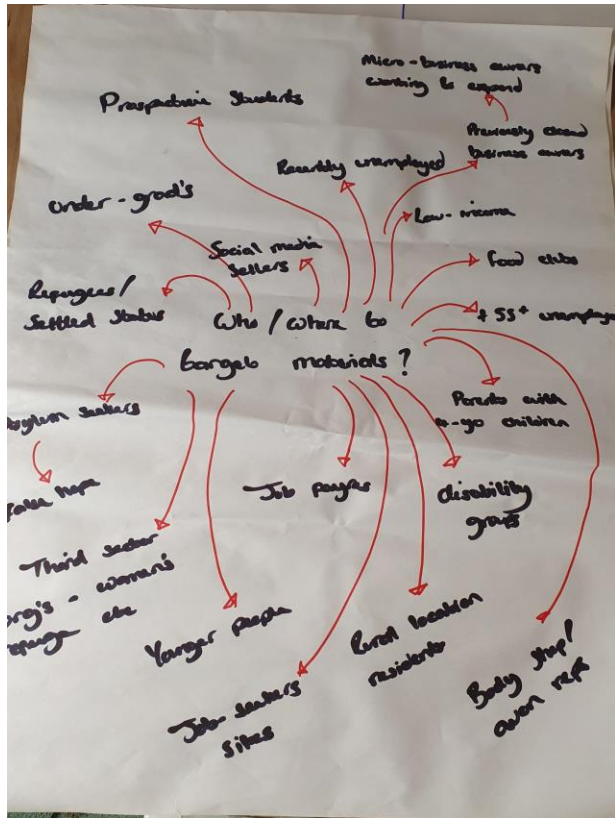 Micro-business owners
wanting to expand
Prospective Students
Previously closed
business owners
Recently unemployed
Under-grad's
Low-income
Social media
Sellers
food clubs
Refugees/
Settled Status
Who / where to
target materials?
+55+ unemployed
Parents with
children
Asylum seekers
Job pages
disability
groups
Third sector
org's - women's
refuge etc
Younger people
Rural location
residents
Job-seekers
sites
Body Shop/
avon reps